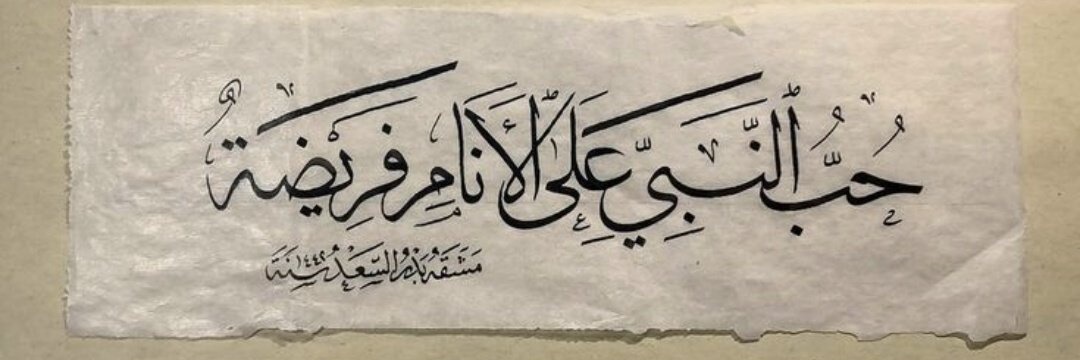 حُبُّ ٱلنَّبِيِّ عَلَى ٱلْأَنَامِ فَرِيضَةٌ
مَشَقَهُ بَدْرُ السَّعْدُ سَنَةَ ١٤٤٢